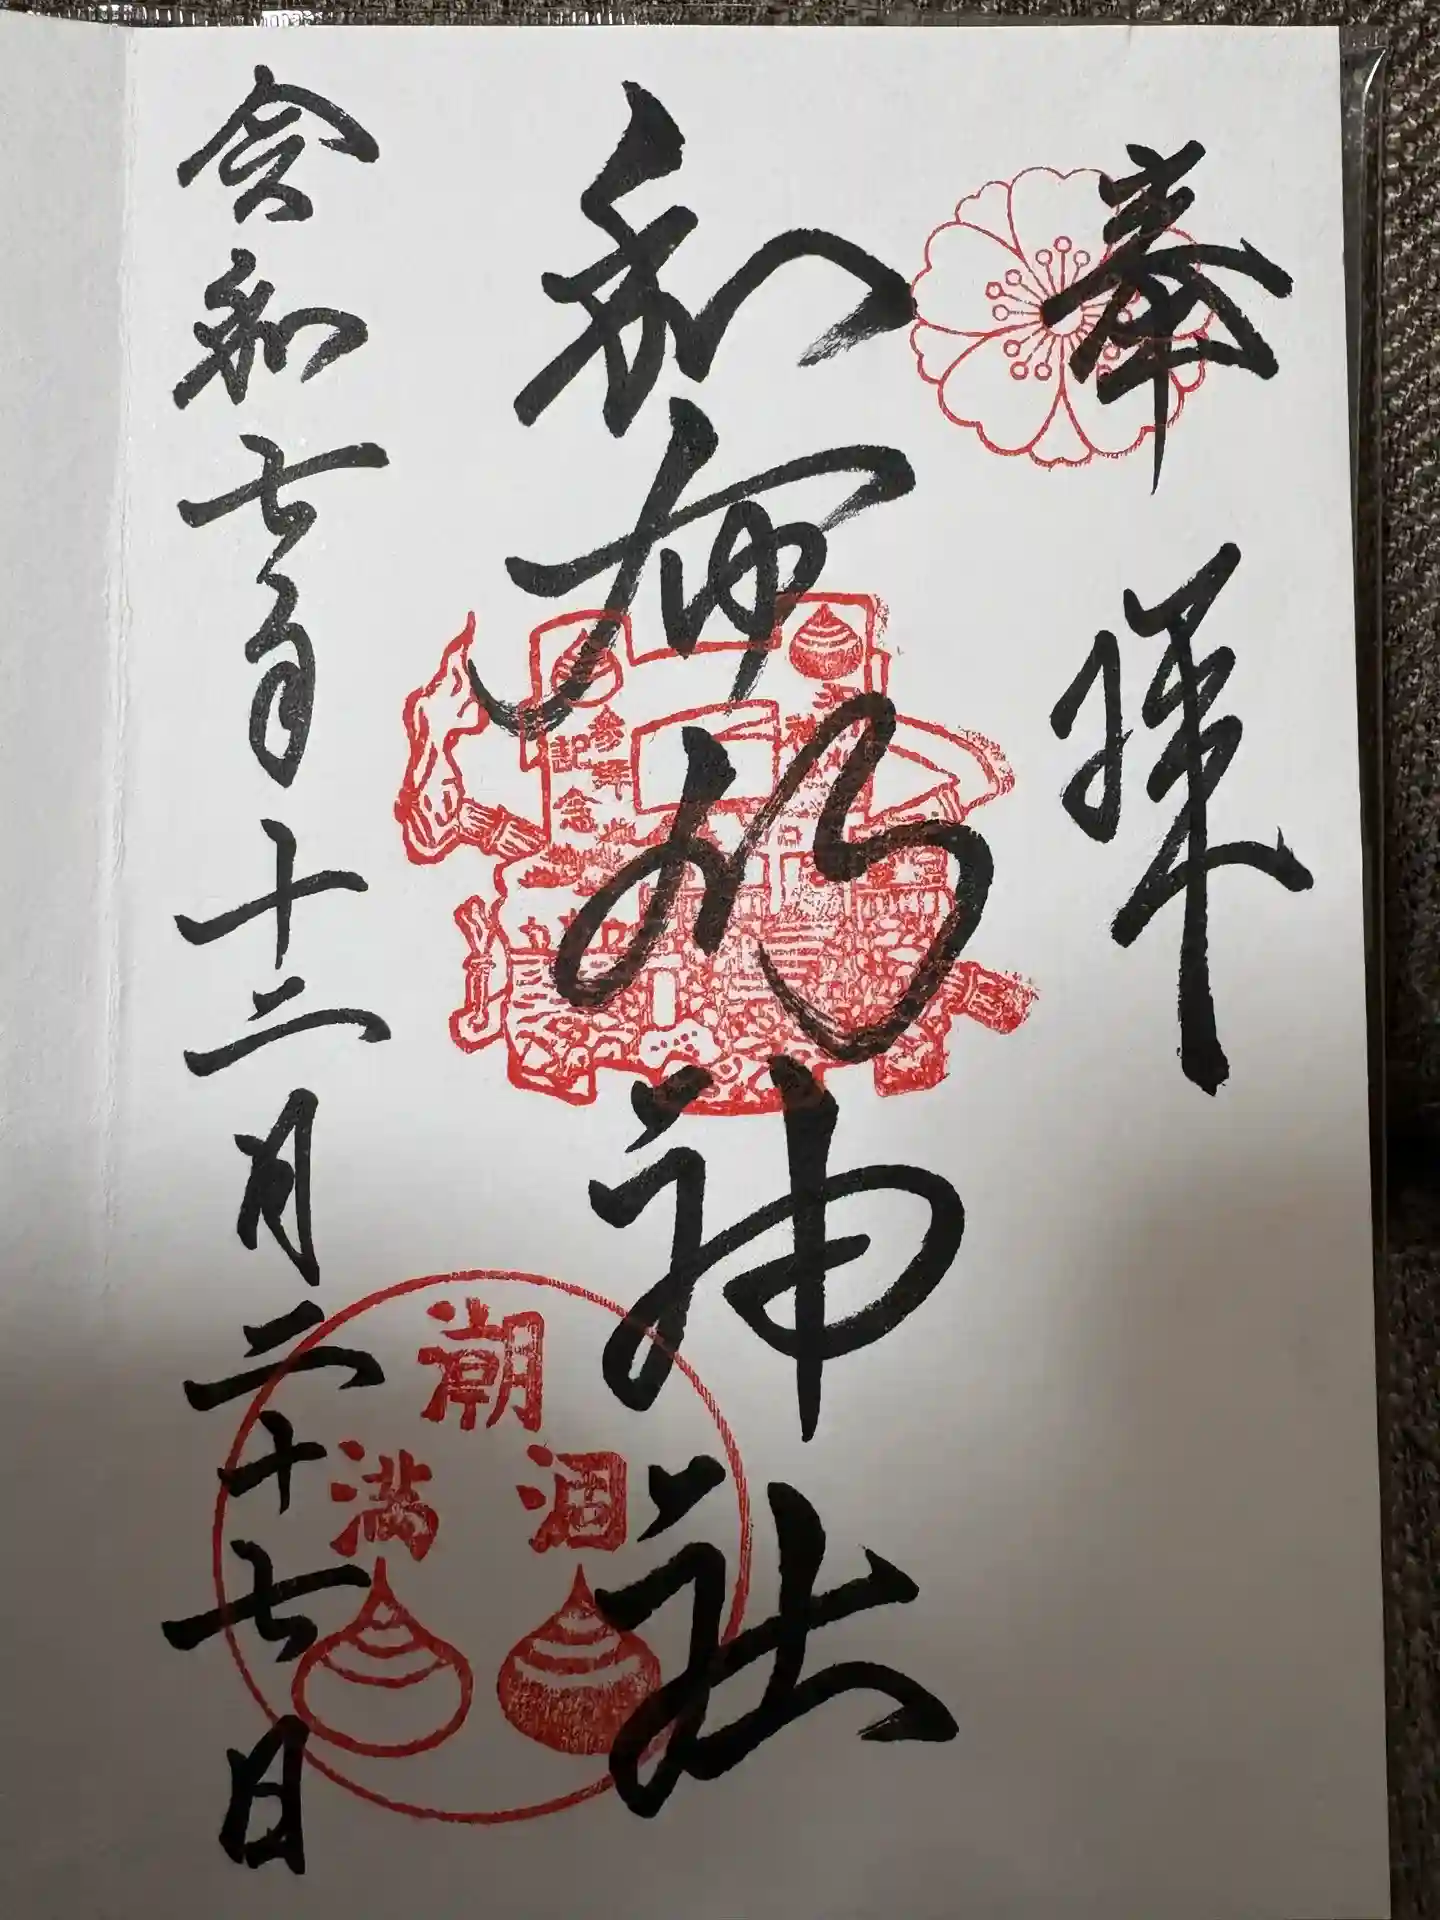 奉拝
和布刈神社
令和七年十二月二十七日
参拝
記念
潮
満
涸